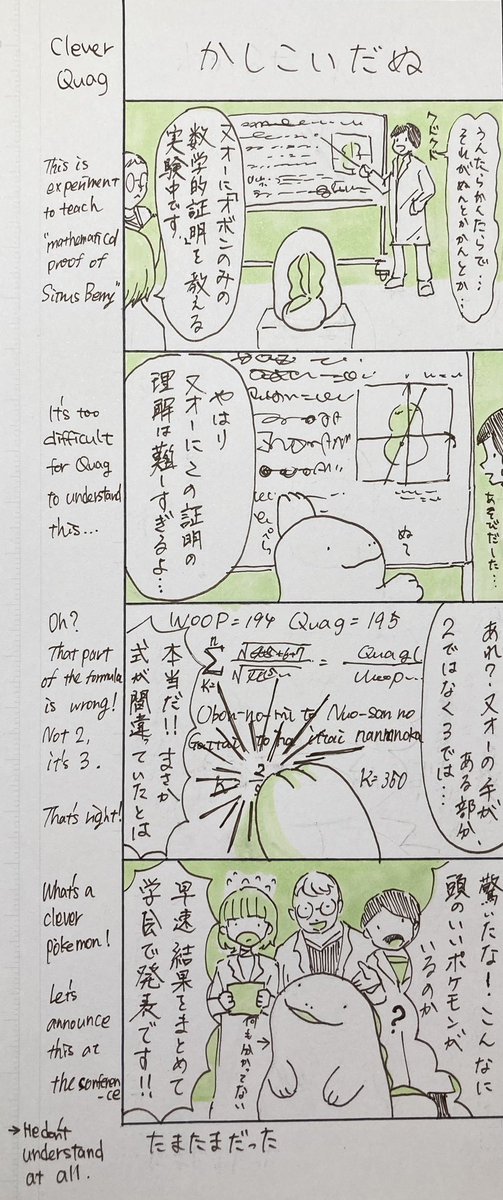 Clever
Quag
かしこいだぬ
This is
experiment
to teach
"mathematical
proof of
Sitrus Berry"
うんたらかくたらで…
それがぬんとかかんとか…
クドクド
ヌオーに「オボンのみの
数学的証明」を教える
実験中です。
It's too
difficult
for Quag
to understand
this...
あそびだした…
やはり
ヌオーにこの証明の
理解は難しすぎるよ…
ぬ〜
ぺら
Oh?
That part
of the formula
is wrong!
Not 2,
it's 3.
That's right!
WOOP=194 Quag=195
あれ?ヌオーの手が
ある部分、
2ではなく3では…
Obon-no-mi to Nuo-san no
K=350
本当だ!!まさか
式が間違っていたとは
What's a
clever
pokemon!
Let's
announce
this at
the sonferen-
ce
驚いたな!こんなに
頭のいいポケモンが
いるのか
?
早速結果をまとめて
学会で発表です!!
何も分かってない→
→He don't
understand
at all.
たまたまだった